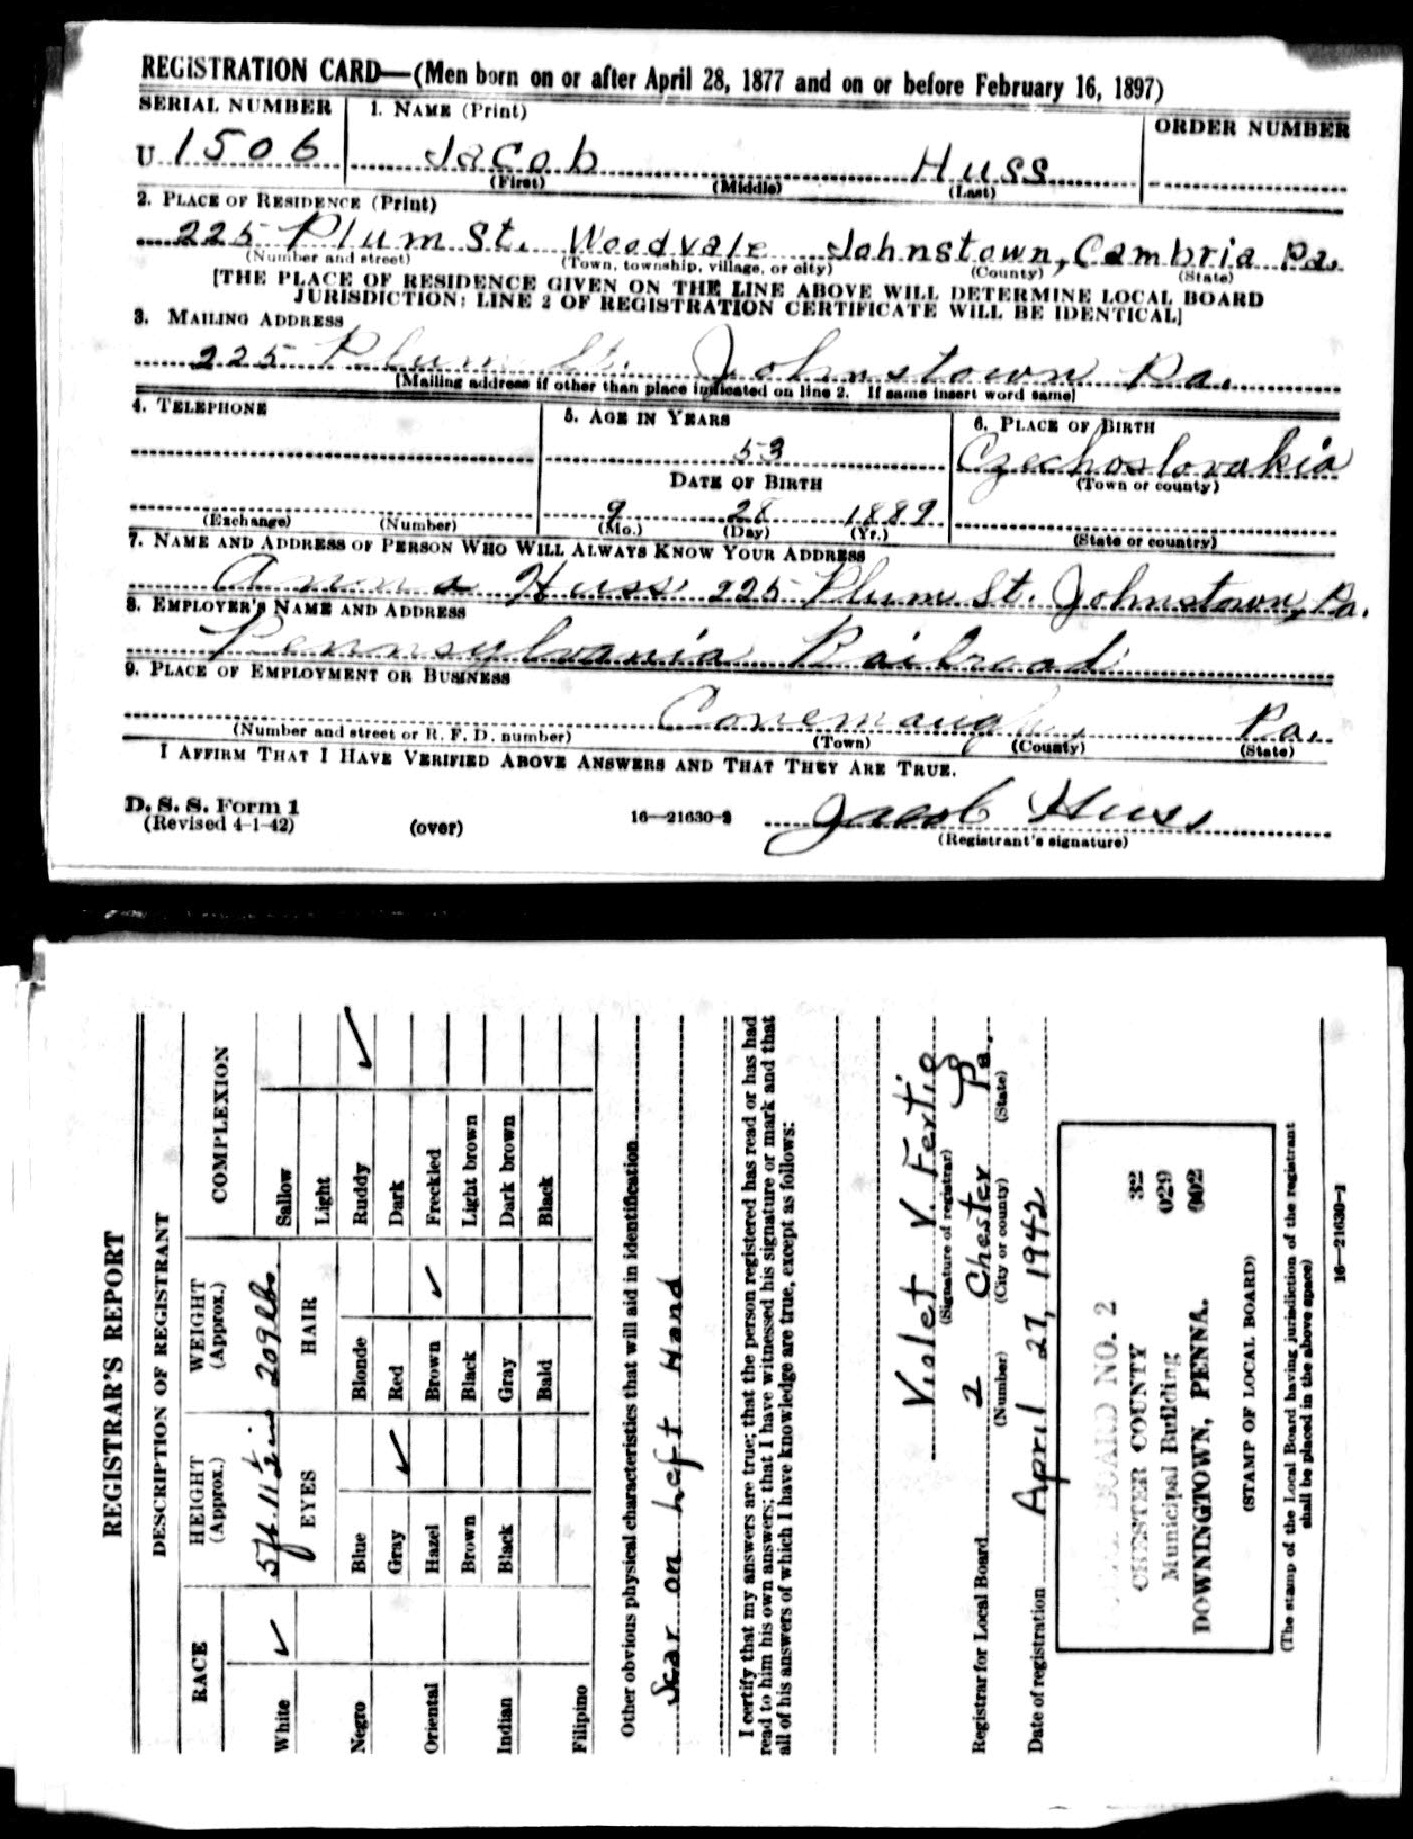 REGISTRATION CARD—(Men born on or after April 28, 1877 and on or before February 16, 1897)
SERIAL NUMBER
1. NAME (Print)
ORDER NUMBER
U 1506
Jacob Huss
(First) (Middle) (Last)
2. PLACE OF RESIDENCE (Print)
225 Plum St. Woodvale Johnstown, Cambria Pa.
(Number and street) (Town, township, village, or city) (County) (State)
[THE PLACE OF RESIDENCE GIVEN ON THE LINE ABOVE WILL DETERMINE LOCAL BOARD
JURISDICTION; LINE 2 OF REGISTRATION CERTIFICATE WILL BE IDENTICAL]
3. MAILING ADDRESS
225 Plum St. Johnstown Pa.
[Mailing address if other than place indicated on line 2. If same insert word same]
4. TELEPHONE
5. AGE IN YEARS
6. PLACE OF BIRTH
53
Czechoslovakia
DATE OF BIRTH
(Town or county)
9 28 1889
(Exchange) (Number) (Mo.) (Day) (Yr.) (State or country)
7. NAME AND ADDRESS OF PERSON WHO WILL ALWAYS KNOW YOUR ADDRESS
Anna Huss 225 Plum St. Johnstown, Pa.
8. EMPLOYER'S NAME AND ADDRESS
Pennsylvania Railroad
9. PLACE OF EMPLOYMENT OR BUSINESS
Conemaugh Pa.
(Number and street or R. F. D. number) (Town) (County) (State)
I AFFIRM THAT I HAVE VERIFIED ABOVE ANSWERS AND THAT THEY ARE TRUE.
D. S. S. Form 1
(Revised 4-1-42) (over) 16—21630-2 Jacob Huss
(Registrant's signature)
REGISTRAR'S REPORT
DESCRIPTION OF REGISTRANT
RACE
HEIGHT (Approx.)
WEIGHT (Approx.)
COMPLEXION
White ✓
5 ft. 11 1/2 in
209 lbs.
Sallow
EYES
HAIR
Light
Negro
Blue
Blonde
Ruddy ✓
Gray ✓
Red
Dark
Oriental
Hazel
Brown ✓
Freckled
Brown
Black
Light brown
Indian
Black
Gray
Dark brown
Bald
Black
Filipino
Other obvious physical characteristics that will aid in identification
Scar on Left Hand
I certify that my answers are true; that the person registered has read or has had
read to him his own answers; that I have witnessed his signature or mark and that
all of his answers of which I have knowledge are true, except as follows:
Violet V. Fertig
(Signature of registrar)
Registrar for Local Board 2 Chester Pa.
(Number) (City or county) (State)
Date of registration April 27, 1942
BOARD NO. 2
CHESTER COUNTY 32
Municipal Building 029
DOWNINGTOWN, PENNA. 002
(STAMP OF LOCAL BOARD)
(The stamp of the Local Board having jurisdiction of the registrant
shall be placed in the above space)
16—21630-2